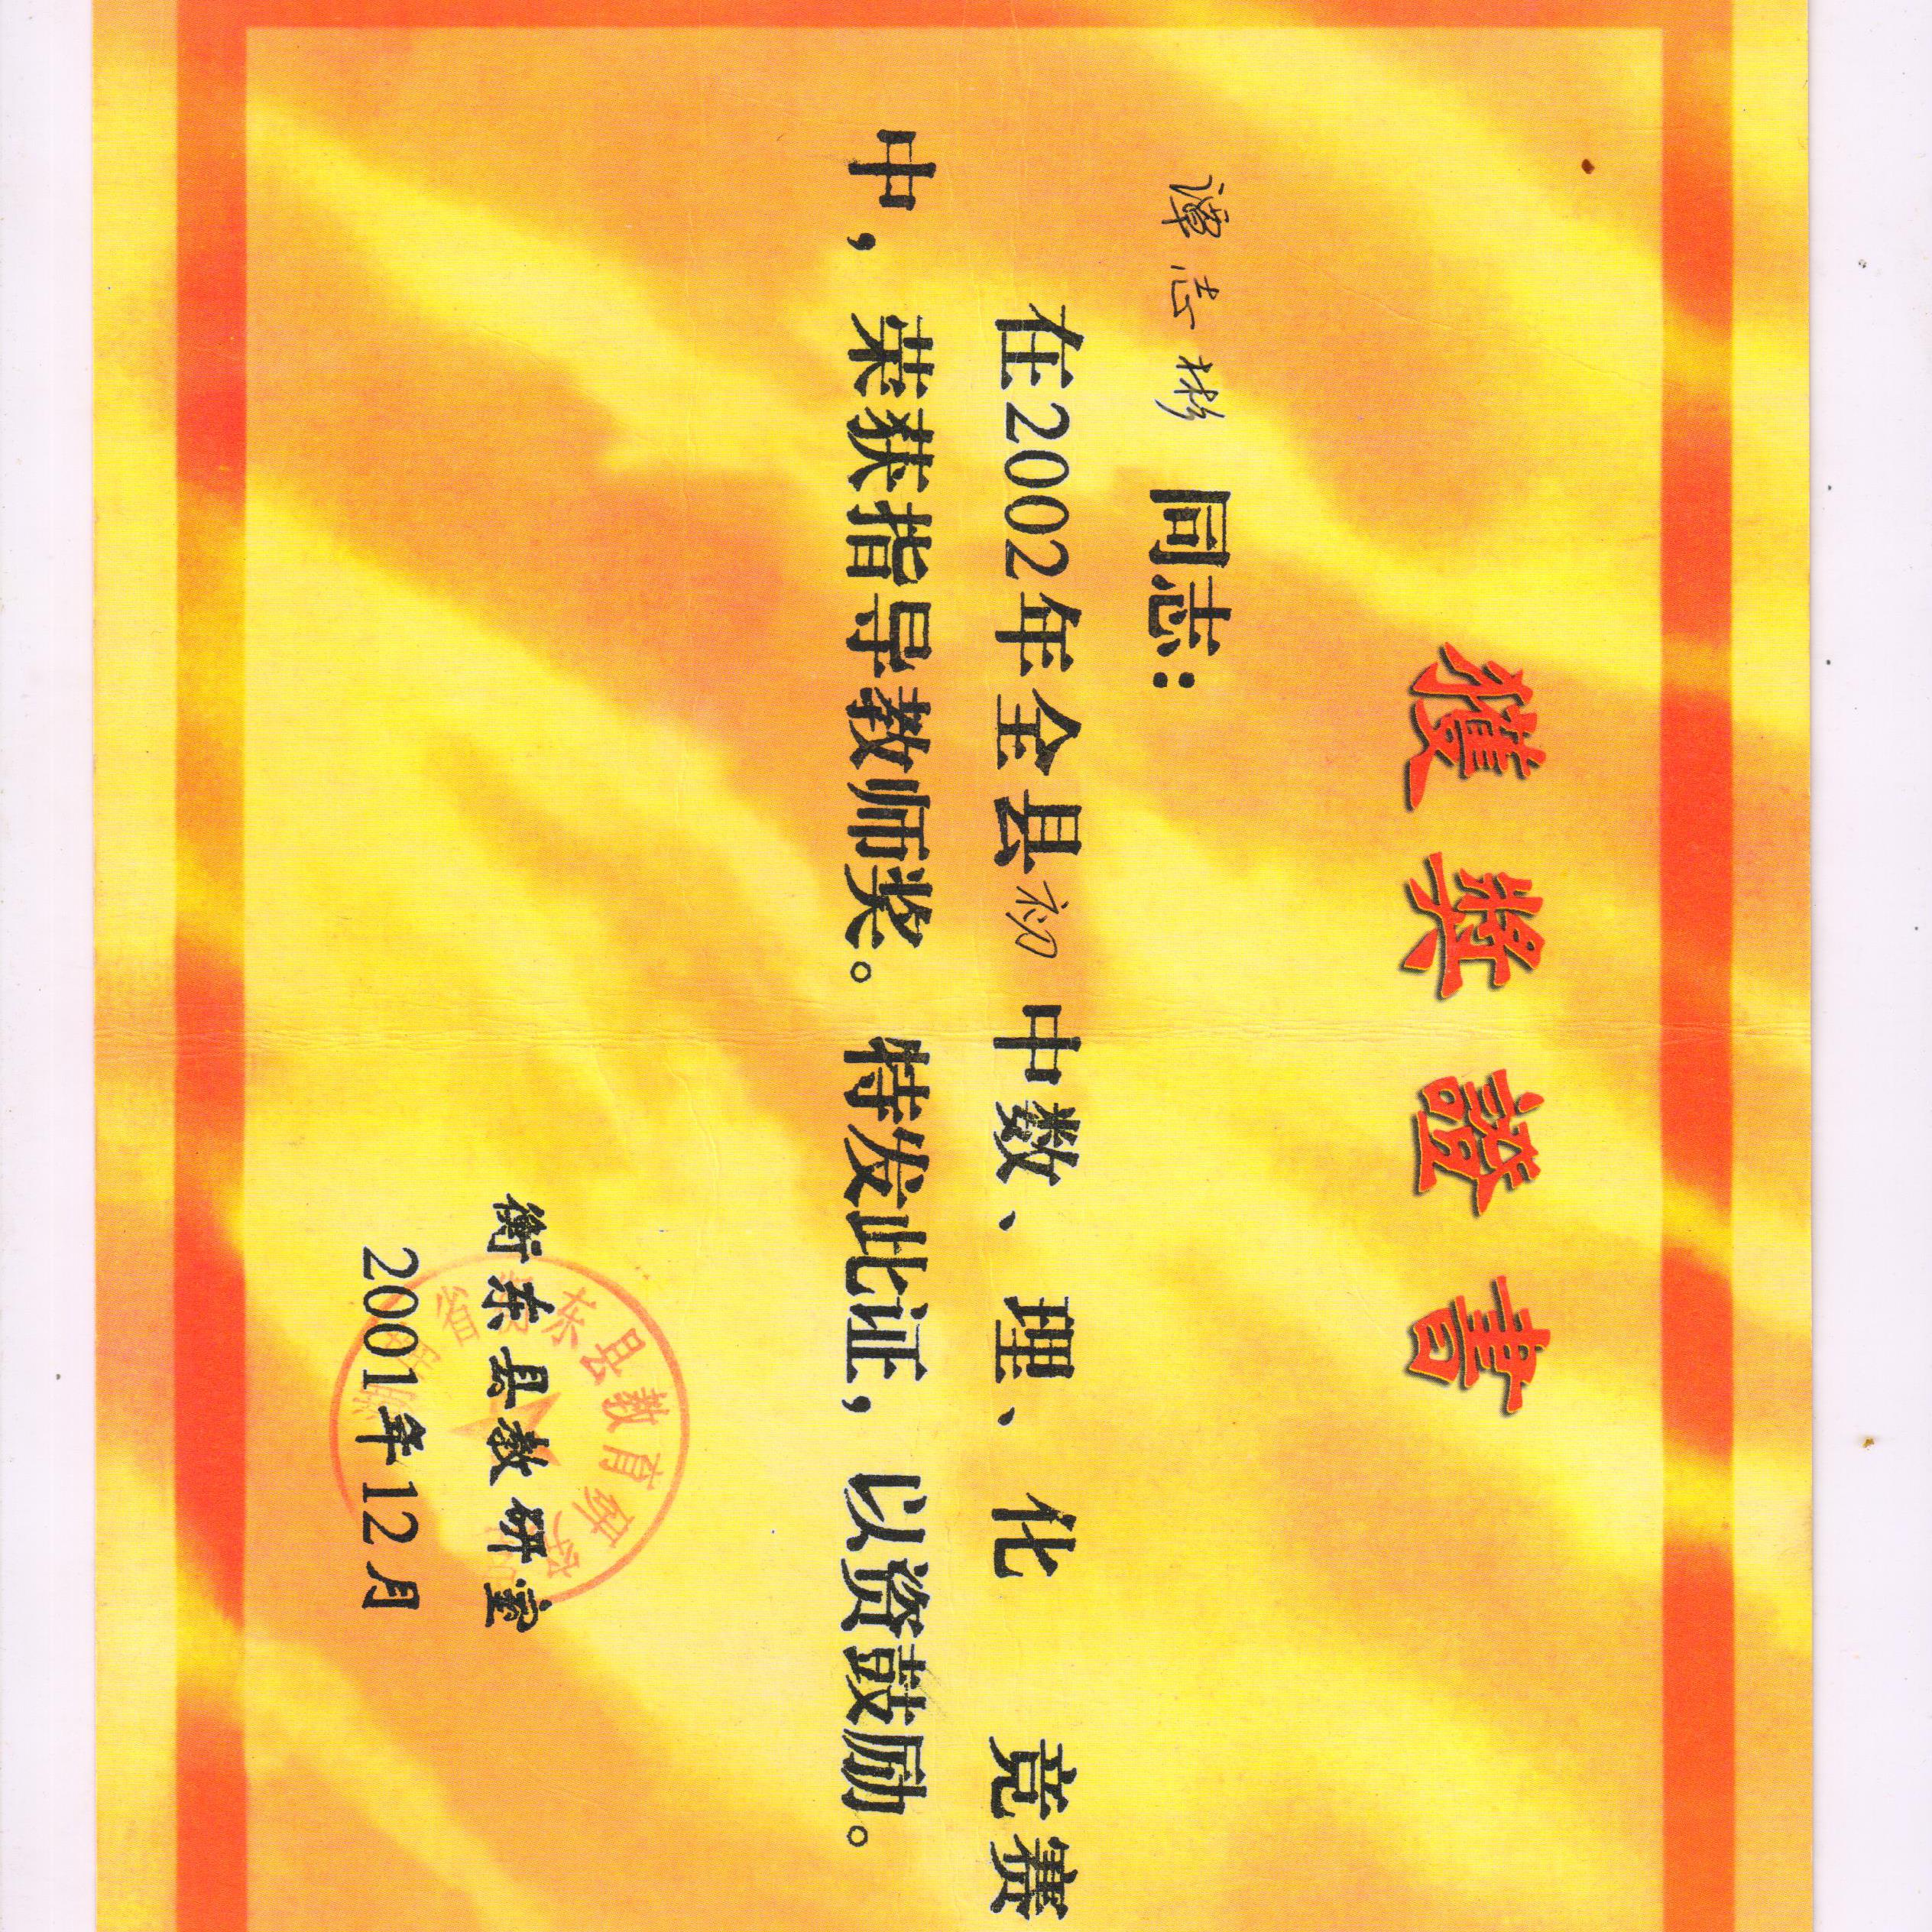 獲奖證書
谭志彬 同志：
在2002年全县初中数、理、化 竞赛
中，荣获指导教师奖。特发此证，以资鼓励。
衡东县教研室
2001年12月
湖南省衡东县教育研究